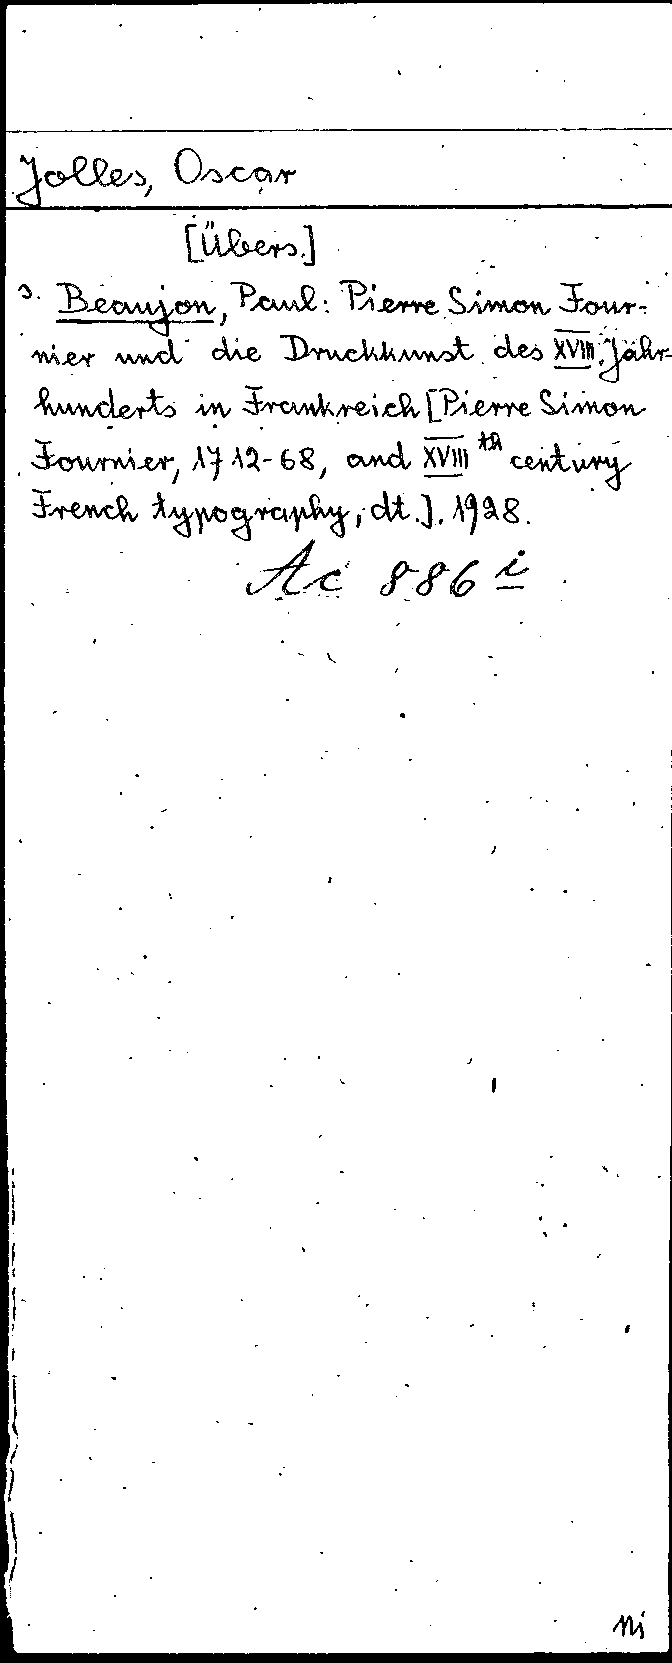 Jolles, Oscar
[Übers.]
s. Beaujon, Paul: Pierre Simon Four-
nier und die Druckkunst des XVIII. Jahr-
hunderts in Frankreich [Pierre Simon
Fournier, 1712-68, and XVIII th century
French typography, dt.]. 1928.
Ac 886 i
ni